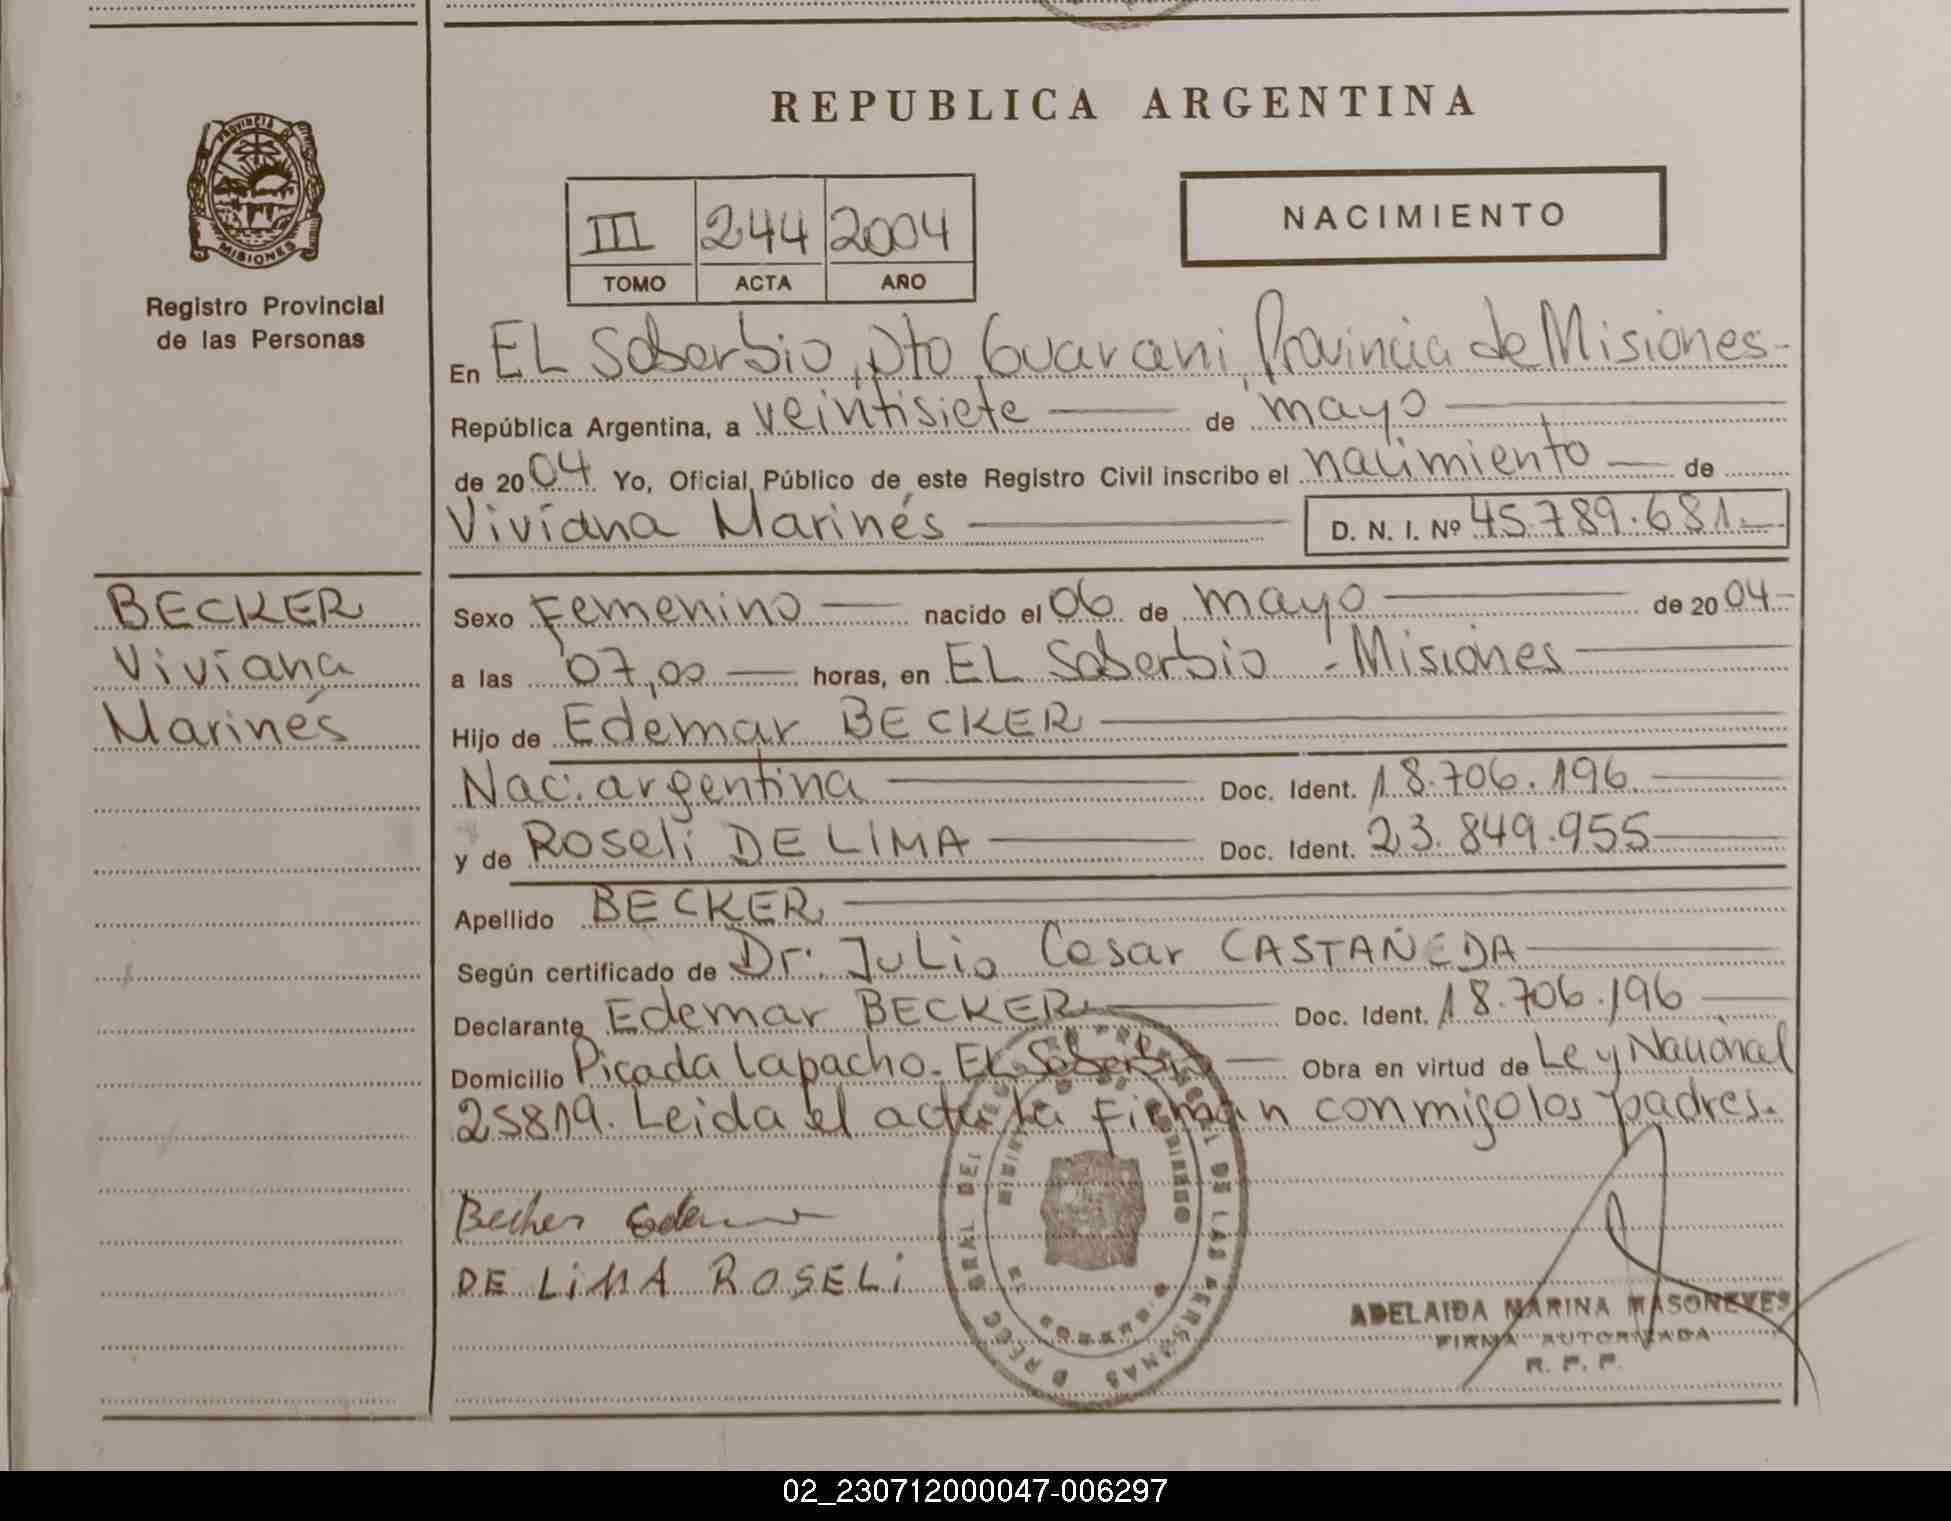 REPUBLICA ARGENTINA
PROVINCIA D
MISIONES
Registro Provincial
de las Personas
III 244 2004
TOMO ACTA AÑO
NACIMIENTO
En EL Soberbio, Dto Guarani, Provincia de Misiones-
República Argentina, a veintisiete de mayo
de 2004 Yo, Oficial Público de este Registro Civil inscribo el nacimiento de
Viviana Marinés D. N. I. Nº 45.789.681.-
BECKER
Viviana
Marinés
Sexo Femenino nacido el 06 de mayo de 2004-
a las 07,00 horas, en EL Soberbio - Misiones
Hijo de Edemar BECKER
Nac: argentina Doc. Ident. 18.706.196
y de Roseli DE LIMA Doc. Ident. 23.849.955
Apellido BECKER
Según certificado de Dr. Julio Cesar CASTAÑEDA
Declarante Edemar BECKER Doc. Ident. 18.706.196
Domicilio Picada Lapacho. EL Soberbio Obra en virtud de Ley Nacional
25819. Leida el acta la Firman conmigo los padres.
Becker Edemar
DE LIMA ROSELI
ADELAIDA MARINA MASONEVES
FIRMA AUTORIZADA
R. P. P.
02_230712000047-006297